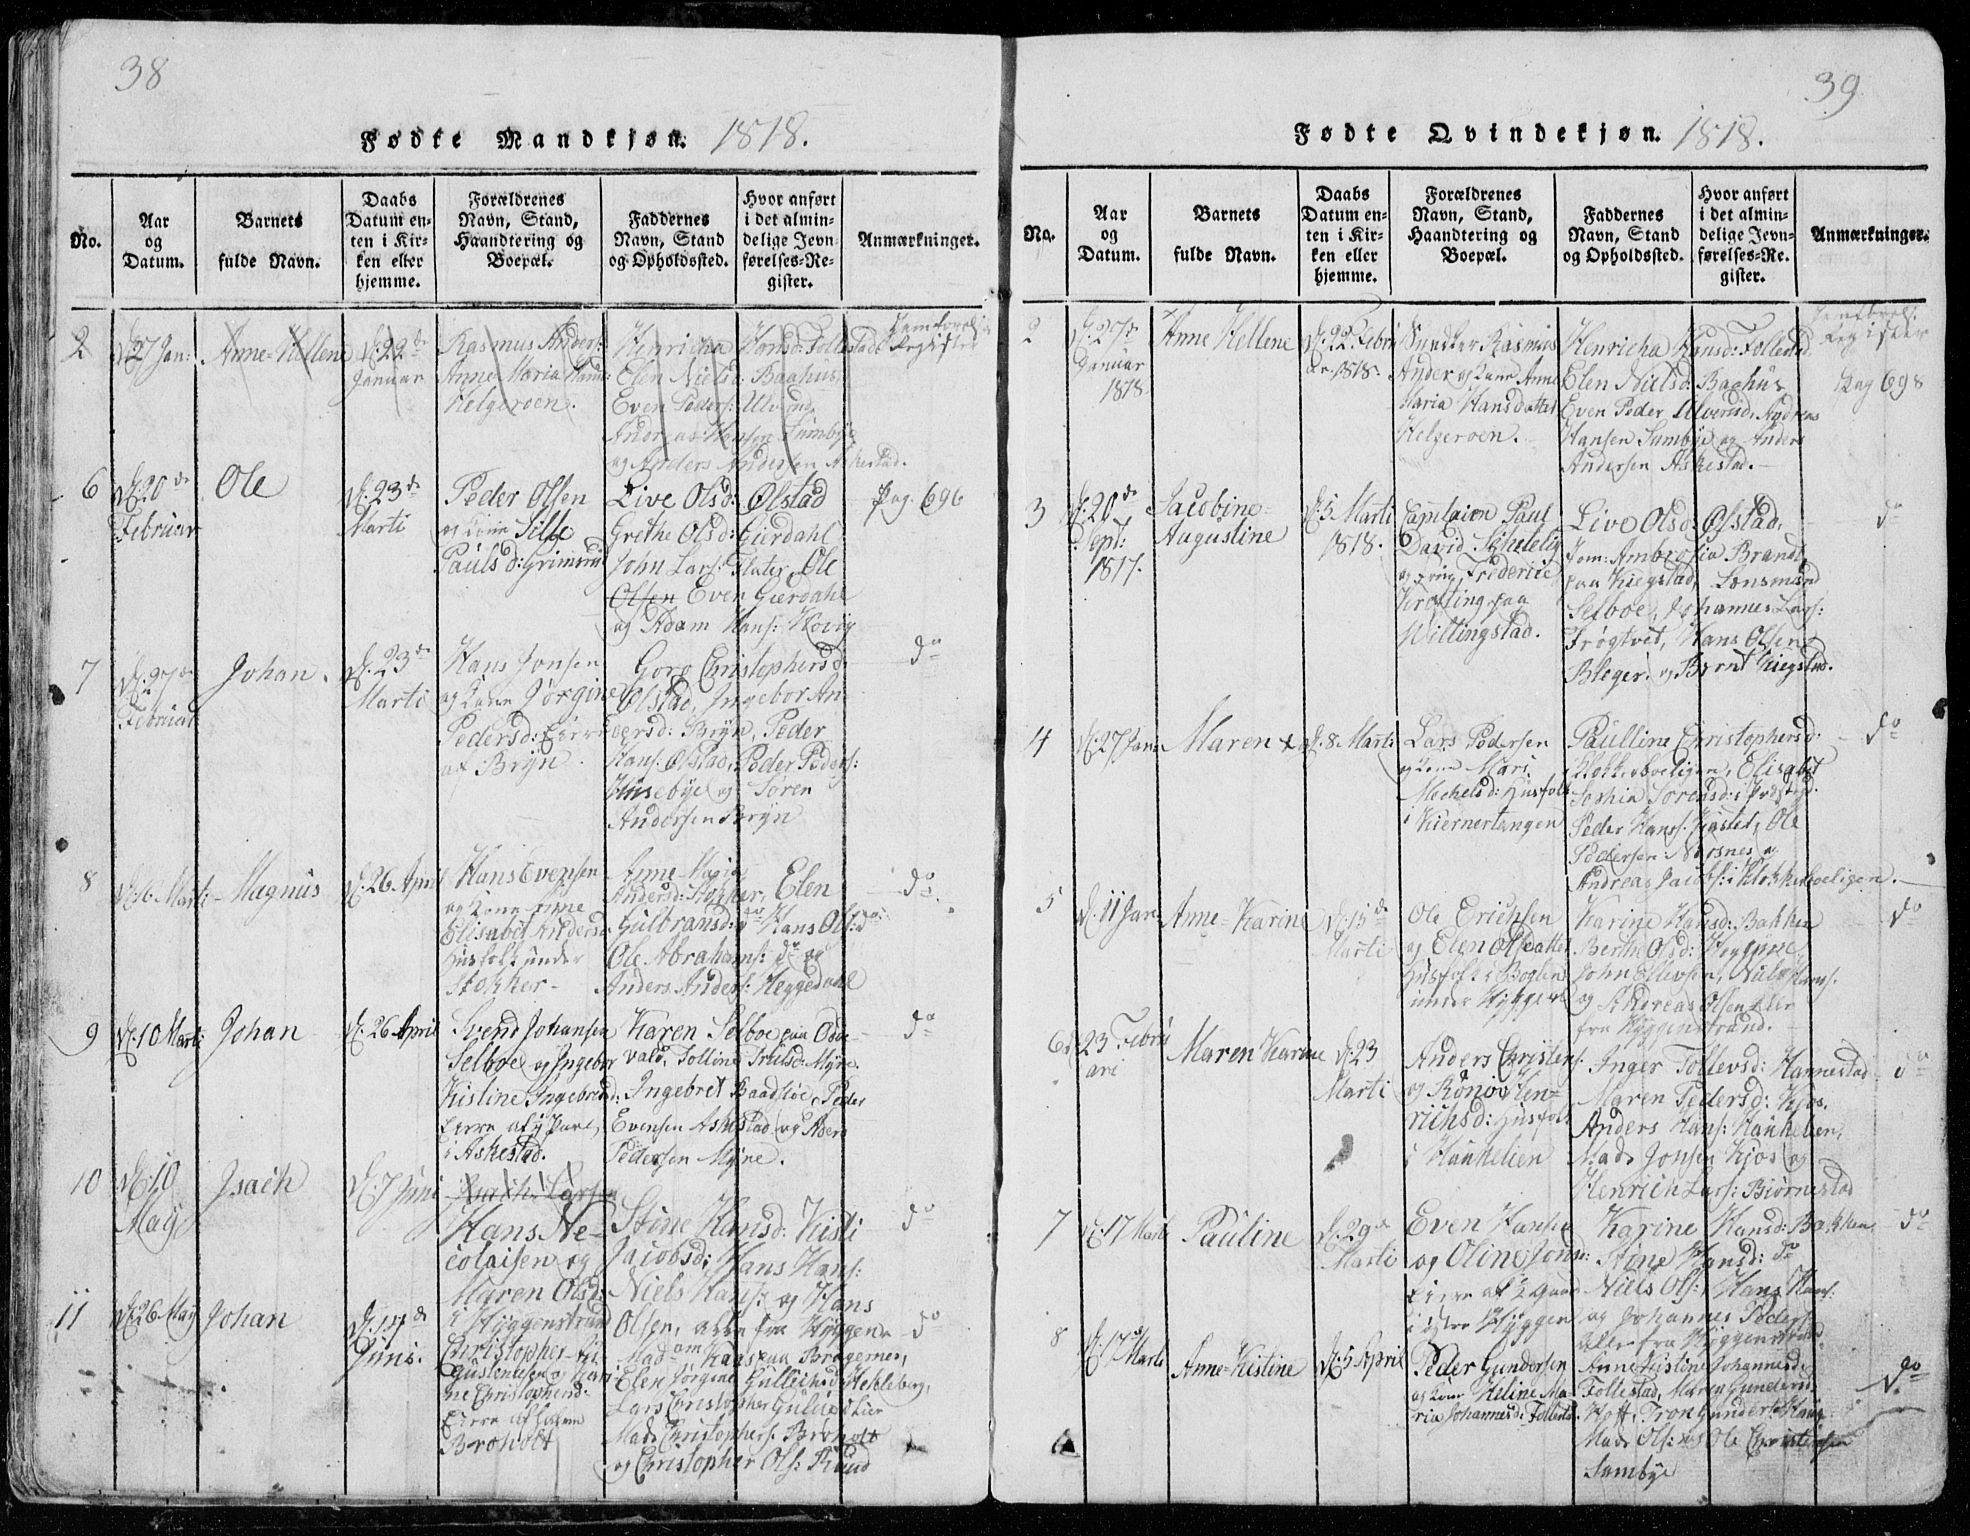 38
Fødte Mandkjøn. 1818.
No.
Aar
og
Datum.
Barnets
fulde Navn.
Daabs
Datum en-
ten i Kir-
ken eller
hjemme.
Forældrenes
Navn, Stand,
Haandtering og
Boepæl.
Faddernes
Navn, Stand
og Opholdssted.
Hvor anført
i det almin-
delige Jevn-
førelses-Re-
gister.
Anmærkninger.
2
27 Jan:
Anne-Hellene
22de
Januar
Rasmus Ander:
Anne-Maria Hans:
Helgeroen.
Henricha Hansd: Follestad
Elen Nielsd: Baahus,
Even Peders:
Andreas Hansen Sumbye
og Anders Andersen Askestad.
Register
6
20de
Februar
Ole
23de
Marti
Peder Olsen
og Kone Sille
Paulsd: Grimsrud
Live Olsd: Ølstad
Grethe Olsd: Gierdahl
John Lars: Flater, Ole
Olsen Even Gierdahl
og Adam Hans: Hovig
Pag. 696
7
27de
Februar
Johan.
23de
Marti
Hans Jonsen
og Kone Jørgine
Pedersd: Eiere
af Bryn.
Goro Christophersd:
Ølstad, Ingebor An-
dersd: Bryn, Peder
Hans: Ølstad, Peder Peders:
Husebye og Søren
Andersen Bryn
do
8
16 Marti
Magnus
26 April
Hans Evensen
og Kone Anne
Elisabet Andersd:
Husfolk under
Stokker-
Anne-Maria
Andersd: Stokker, Elen
Gulbransd: do Hans Ols: do
Ole Abrahams: do og
Anders Anders: Heggedahl
do
9
10 Marti
Johan
26 April
Svend Johansen
Selboe og Ingebor
Kistine Ingebretsd:
Eiere af ½ Part
i Askestad.
Karen Selboe paa Odde-
vald, Tolline Trulsd: Myre.
Ingebret Baadstøe, Peder
Evensen Askestad og
Pedersen Myre.
do
10
10
May
Isach
7 Juni
Isach Larsen
Hans Ne-
colaisen og
Maren Olsd:
i Hyggenstrand
Stine Hansd: Kisti
Jacobsd: Hans Hans:
Niels Hans: og Hans
Olsen, alle fra Hyggen
do
11
26 May
Johan
14de
Juni.
Christopher
Gulsteensen og Kari-
ne Christophersd:
Eiere af
Broholt
Madam Haas paa Bragernes,
Elen Jørgine Gullichsd: Hekleberg,
Lars Christopher Gulich: Lier
Mads Christophers: Broholt
og Christopher Ols: Ruud
do
39
Fødte Qvindekjøn. 1818.
No.
Aar
og
Datum.
Barnets
fulde Navn.
Daabs
Datum en-
ten i Kir-
ken eller
hjemme.
Forældrenes
Navn, Stand,
Haandtering og
Boepæl.
Faddernes
Navn, Stand
og Opholdssted.
Hvor anført
i det almin-
delige Jevn-
førelses-Re-
gister.
Anmærkninger.
2
27de
Januar
1818
Anne Hellene
22 Febru
ar 1818.
Snedker Rasmus
Ander og Kone Anne
Maria Hansdatter
Helgeroen.
Henricha Hansd: Follestad
Elen Nielsd: Baahus
Even Peder Ulverud, Andreas
Hansen Sumbye og Anders
Andersen Askestad.
Register
Pag 698
3
20de
Sept:
1817.
Jacobine-
Augustine
5 Marti
1818.
Captaien Paul
David Schetelig
og Frue, Frederice
Krefting paa
Willingstad.
Live Olsd: Ølstad,
Jom: Ambrosia Brandt
paa Kiegstad,
Selboe, Johannes Lars:
Frøgtvet, Hans Olsen
Bleger, og Bernt Kiegstad.
do
4
27 Jan:
Maren
8. Marti
Lars Pedersen
og Kone Mari
Mechelsd: Husfolk
i Kiernertangen
Paulline Christophersd:
Klokkerboeligen, Elisabet
Sophia Sørensd: i Præstegd.
Peder Hans: Kiøstel, Ole
Pedersen Nærsnes og
Andreas Jacobs: i Klokkerboeligen.
do
5
11 Jan:
Anne-Karine
15de
Marti
Ole Erichsen
og Elen Olsdatter
Husfolk i Boglen
under Hyggen
Karine Hansd: Bakken
Berthe Olsd: Hyggen,
John Ellevsen, Niels Hans:
og Andreas Olsen alle
fra Hyggenstrand.
do
6
23 Febru
ari
Maren Karine
23
Marti
Anders Christens:
og Rønnov Hen-
richsd: Husfolk
i Hankelien
Inger Tollevsd: Hannestad
Maren Pedersd: Kjos,
Anders Hans: Hankelien,
Mads Jonsen Kjos og
Henrich Lars: Biørnestad
do
7
17 Marti
Pauline
29de
Marti
Even Hansen
og Oline Jonsd:
Eiere af ½ Gaard
i østre Hyggen
Karine Hansd: Bakken
Stine Hansd: do
Niels Ols: Hans Hans:
og Johannes Peders:
alle fra Hyggenstrand
do
8
17 Marti
Anne-Kistine
5 April
Peder Gundersen
og Kone Heline Ma-
ria Johannesd: Follestad
Anne Kistine Johannesd:
Follestad, Maren Gundersd:
Hoff, Tron Gunders: Haug
Mads Ols: og Ole Christensen
Sumbye
do